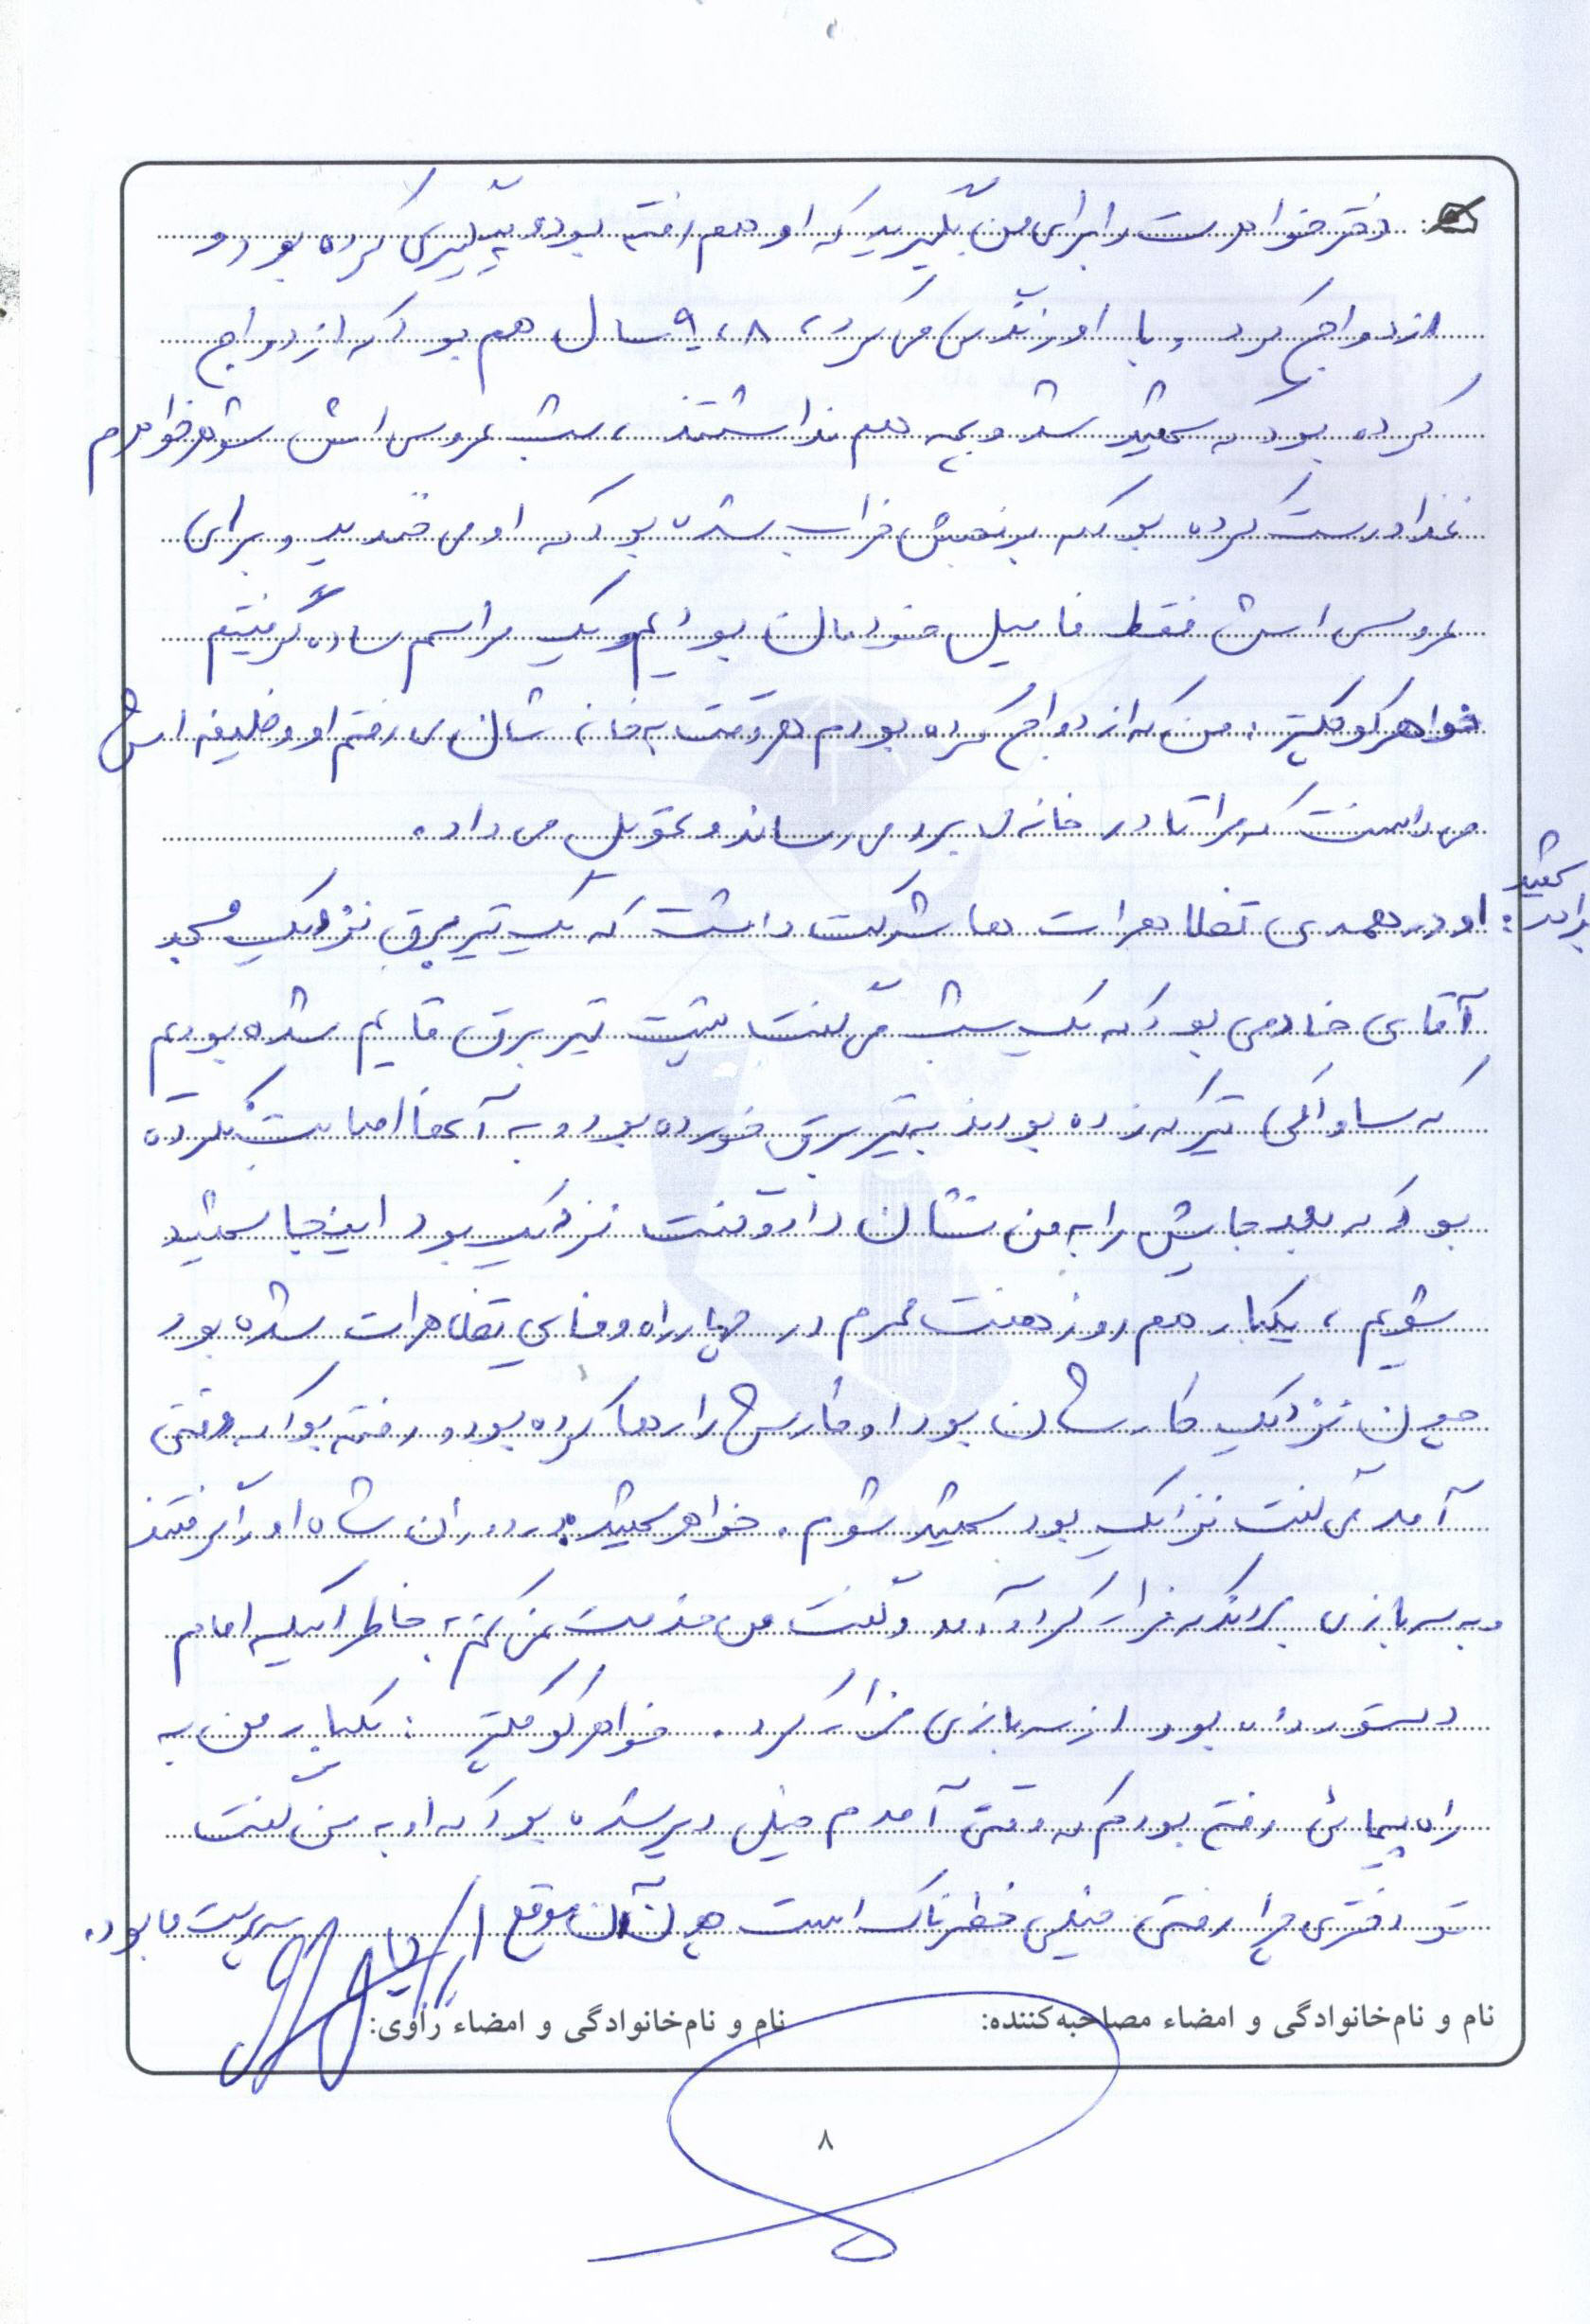 دختر خواهرت را برای من بگیرید که او هم رفته بود و پیگیری کرده بود و
ازدواج کرد و با او زندگی می کرد، ۸ ، ۹ سال هم بود که ازدواج
کرده بود که شهید شد و بچه هم نداشتند، شب عروسی اش شوهر خواهرم
غذا درست کرده بود که برنجش خراب شده بود که او می خندید و برای
عروسی اش فقط فامیل خودمان بودیم و یک مراسم ساده گرفتیم
خواهر کوچکتر: من که ازدواج کرده بودم هر وقت به خانه شان می رفتم او وظیفه اش
می دانست که مرا تا در خانه ی برد می رساند و تحویل می داد.
برادر شهید: او در همه ی تظاهرات ها شرکت داشت که یک تیر برق نزدیک مسجد
آقای خادمی بود که یک شب می گفت پشت تیر برق قایم شده بودیم
که ساواکی تیر که زده بودند به تیر برق خورده بود و به آنها اصابت نکرده
بود که بعد جایش را به من نشان داد و گفت نزدیک بود اینجا شهید
شویم، یکبار هم روز هفت محرم در چهارراه وفایی تظاهرات شده بود
چون نزدیک کارشان بود او کارش را رها کرده بود و رفته بود که وقتی
آمد می گفت نزدیک بود شهید شوم. خواهر شهید: در دوران شاه او را گرفتند
و به سربازی بردند که فرار کرد و آمد و گفت من خدمت نمی کنم به خاطر اینکه امام
دستور داده بود از سربازی فرار کرد. خواهر کوچکتر: یکبار من به
راه پیمائی رفته بودم که وقتی آمدم خیلی دیر شده بود که او به من گفت
تو دختری چرا رفتی خیلی خطرناک است چون آن موقع او سرپرست ما بود.
نام و نام‌خانوادگی و امضاء مصاحبه‌کننده: نام و نام‌خانوادگی و امضاء راوی:
۸